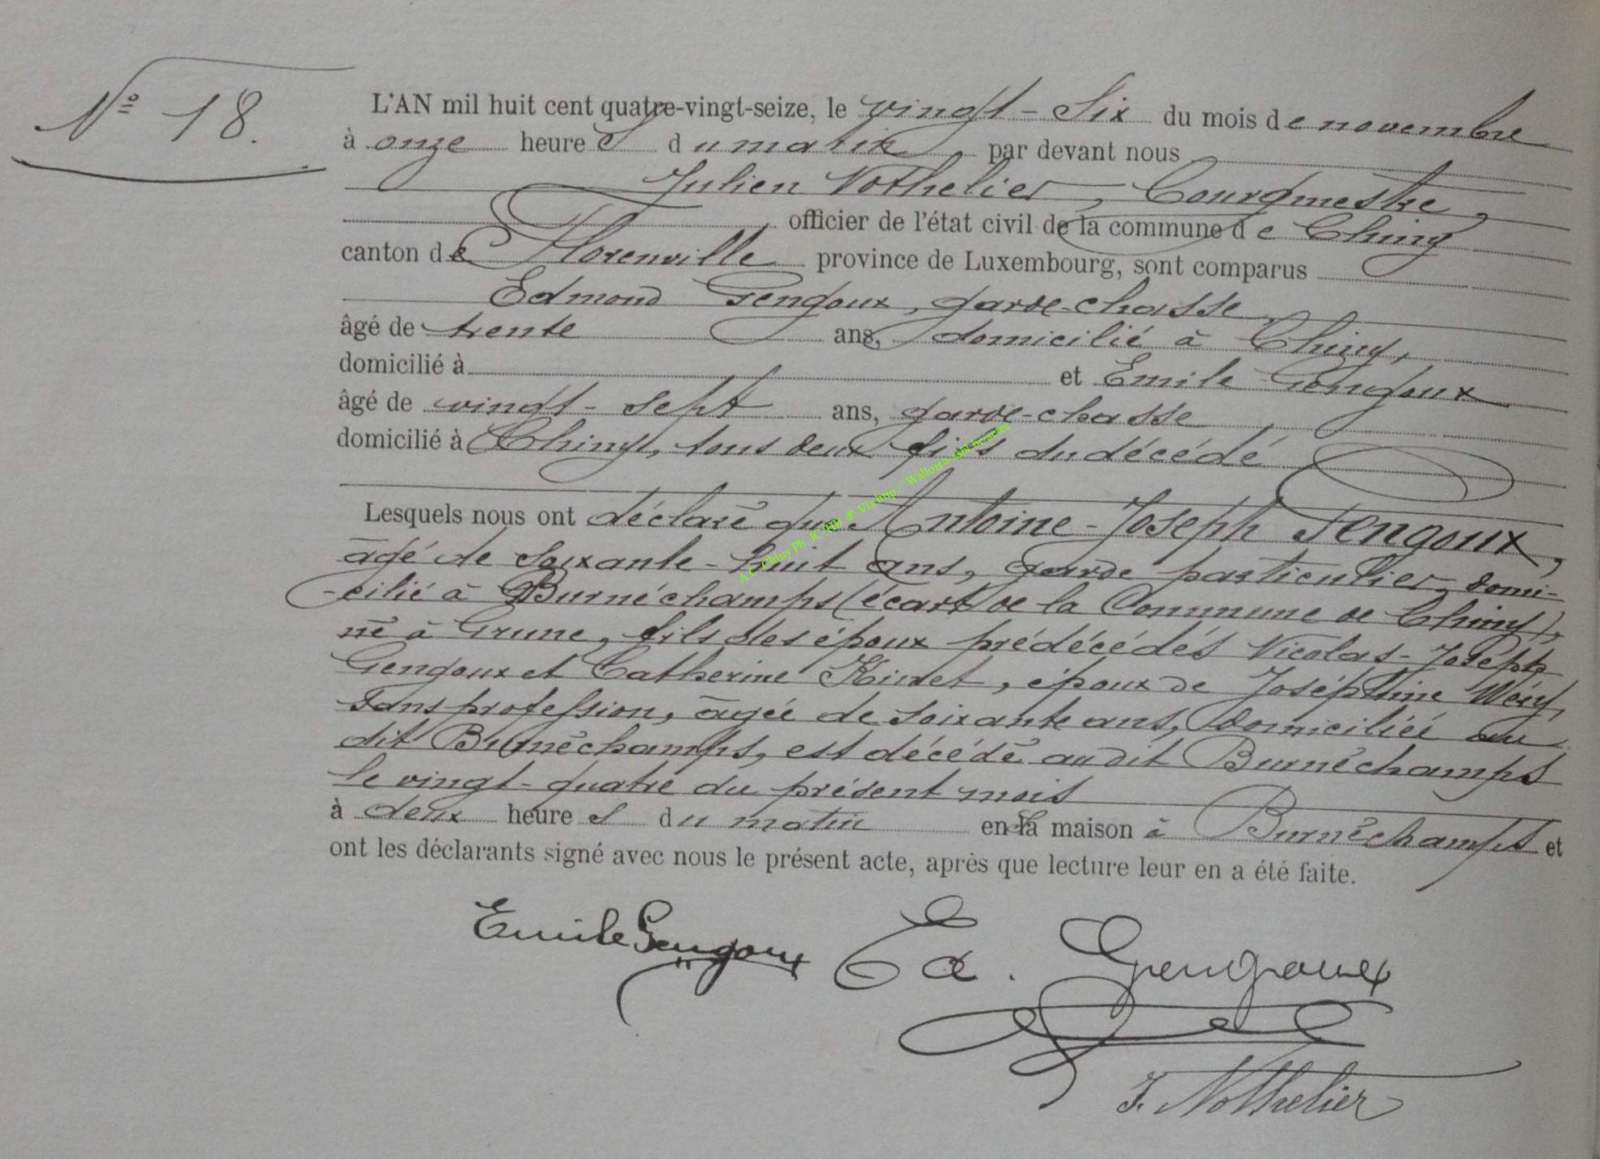 N° 18.
L'AN mil huit cent quatre-vingt-seize, le vingt-six du mois de novembre
à onze heures du matin, par devant nous
Julien Nothelier, Bourgmestre,
officier de l'état civil de la commune de Chiny
canton de Florenville province de Luxembourg, sont comparus
Edmond Gengoux, garde-chasse,
âgé de trente ans, domicilié à Chiny,
domicilié à et Emile Gengoux
âgé de vingt-sept ans, garde-chasse
domicilié à Chiny, tous deux fils du décédé
Lesquels nous ont déclaré que Antoine-Joseph Gengoux,
âgé de soixante-huit ans, garde particulier, domi-
-cilié à Burnéchamps (écart de la Commune de Chiny),
né à Grune, fils des époux prédécédés Nicolas-Joseph
Gengoux et Catherine Kinet, époux de Joséphine Wéry,
sans profession, âgée de soixante ans, domiciliée au
dit Burnéchamps, est décédé au dit Burnéchamps
le vingt-quatre du présent mois
à deux heures du matin en la maison à Burnéchamps et
ont les déclarants signé avec nous le présent acte, après que lecture leur en a été faite.
Emile Gengoux Ed. Gengoux
J. Nothelier